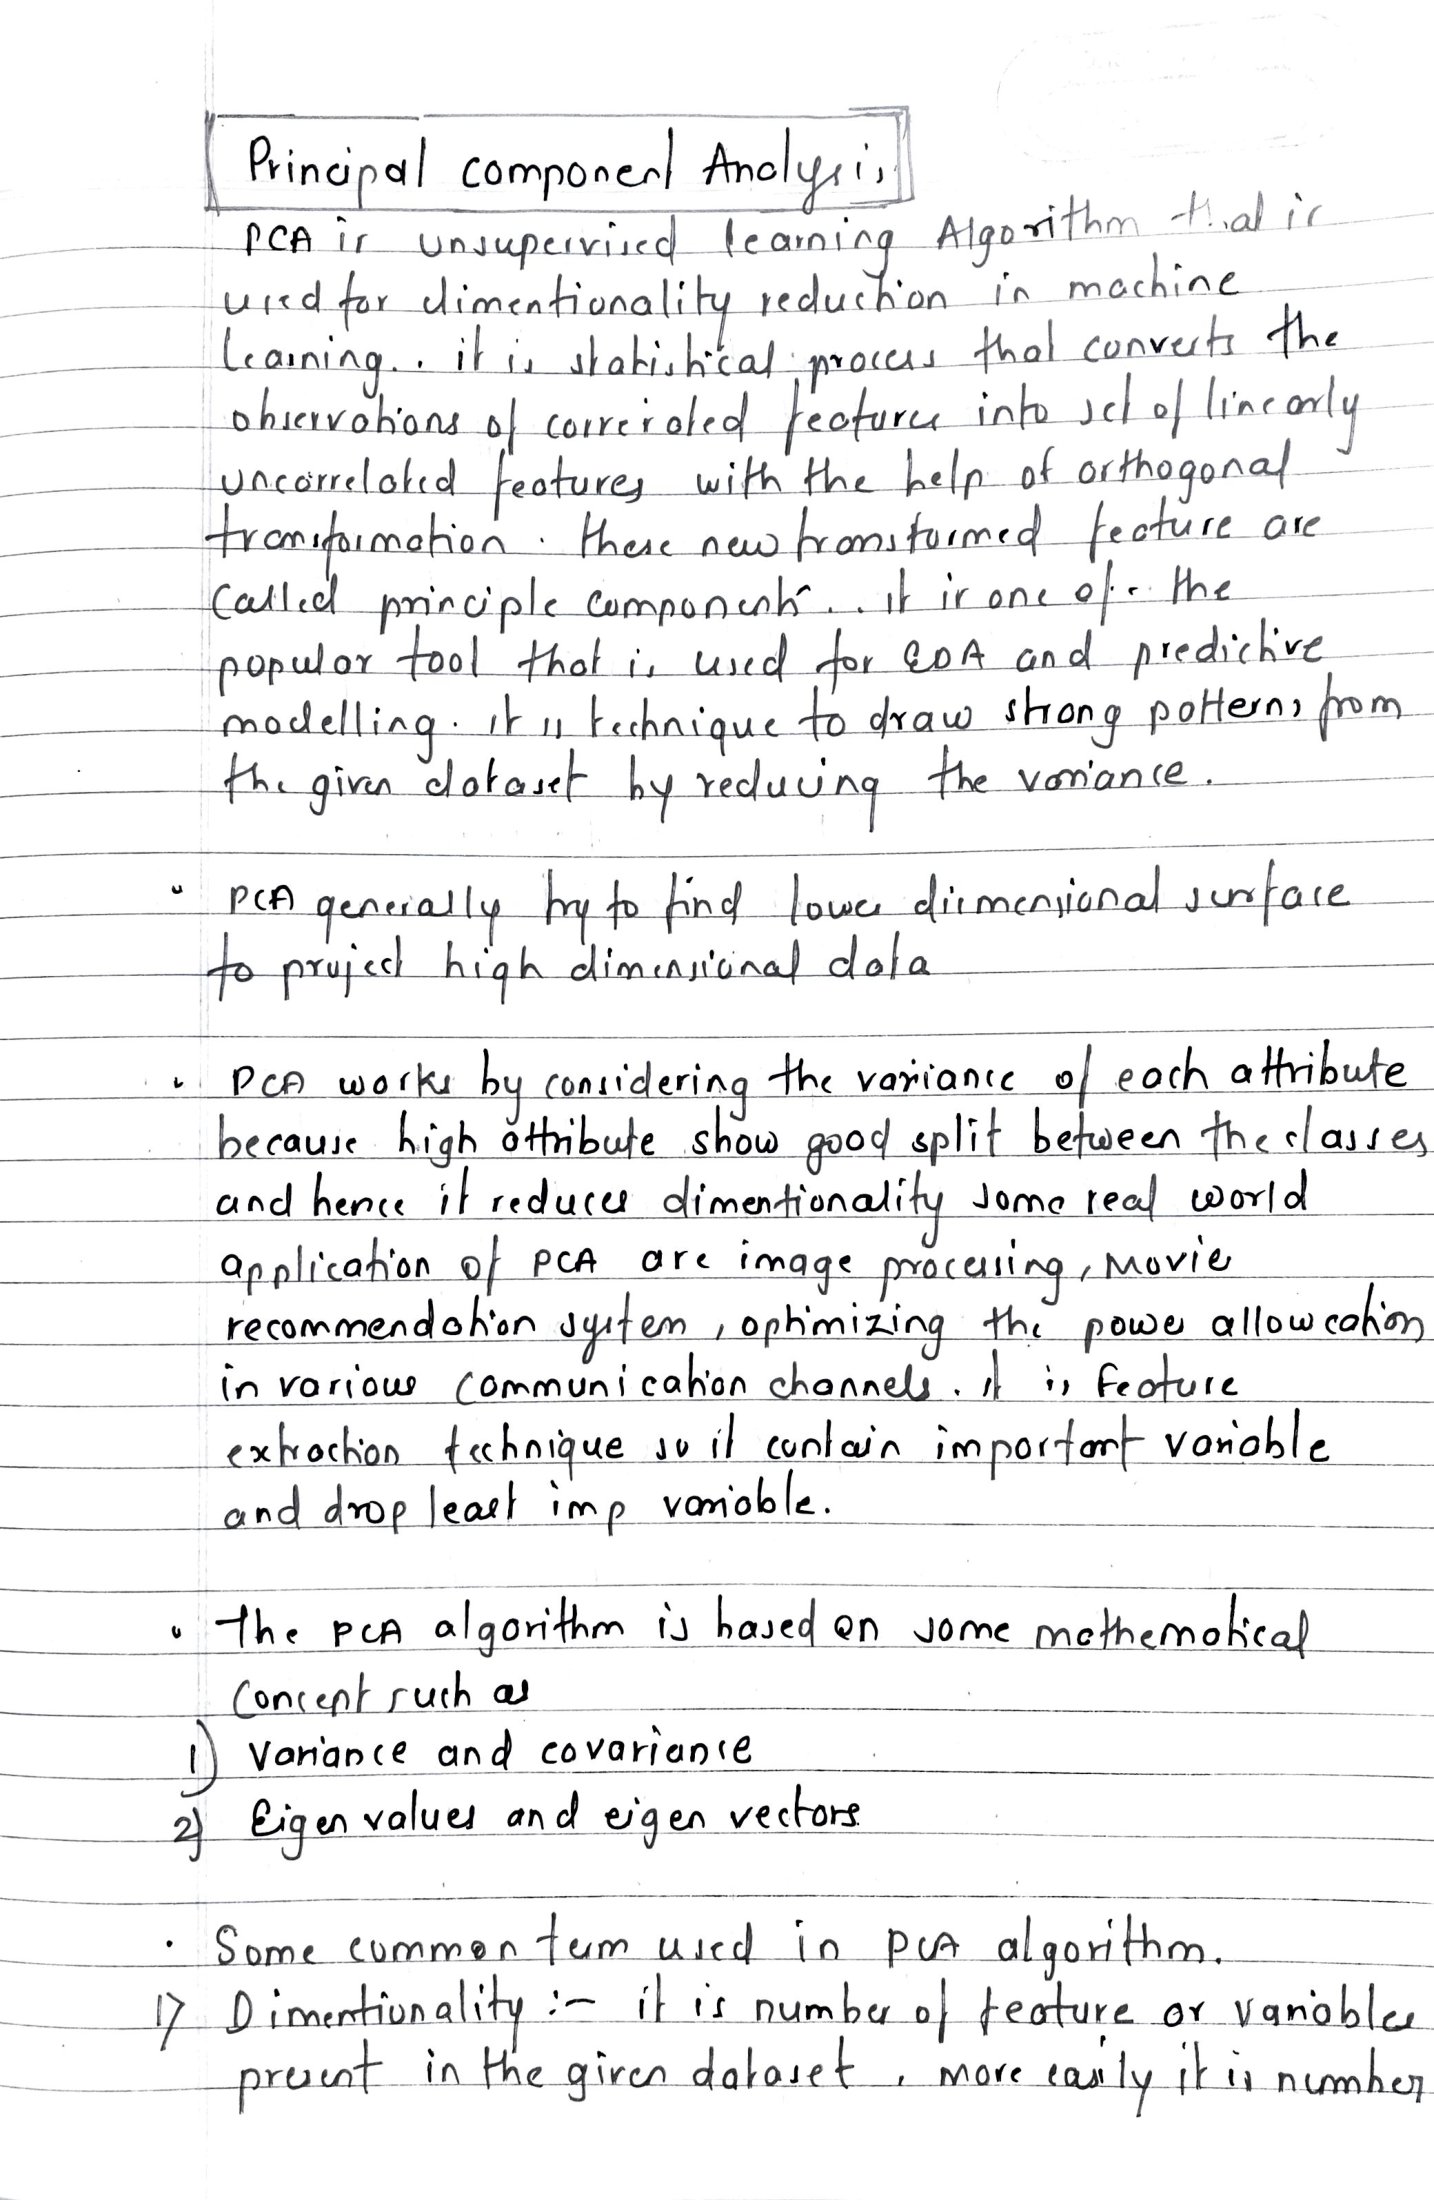 Principal component Analysis
PCA is unsupervised learning Algorithm that is
used for dimentionality reduction in machine
learning.. it is statistical process that converts the
observations of correrated features into set of linearly
uncorrelated features with the help of orthogonal
transformation. these new transformed feature are
called principle components.. it is one of the
popular tool that is used for EDA and predictive
modelling. it is technique to draw strong patterns from
the given dataset by reducing the variance.
• PCA generally try to find lower diimensional surface
to project high dimensional data
• PCA works by considering the variance of each attribute
because high attribute show good split between the classes
and hence it reduces dimentionality some real world
application of PCA are image processing, Movie
recommendation system, optimizing the power allowcation
in various communication channels. it is feature
extraction technique so it contain important variable
and drop least imp variable.
• The PCA algorithm is based on some mathematical
concept such as
1) Variance and covariance
2) Eigen values and eigen vectors
• Some common term used in PCA algorithm.
1) Dimentionality :- it is number of feature or variables
present in the given dataset. more easily it is number